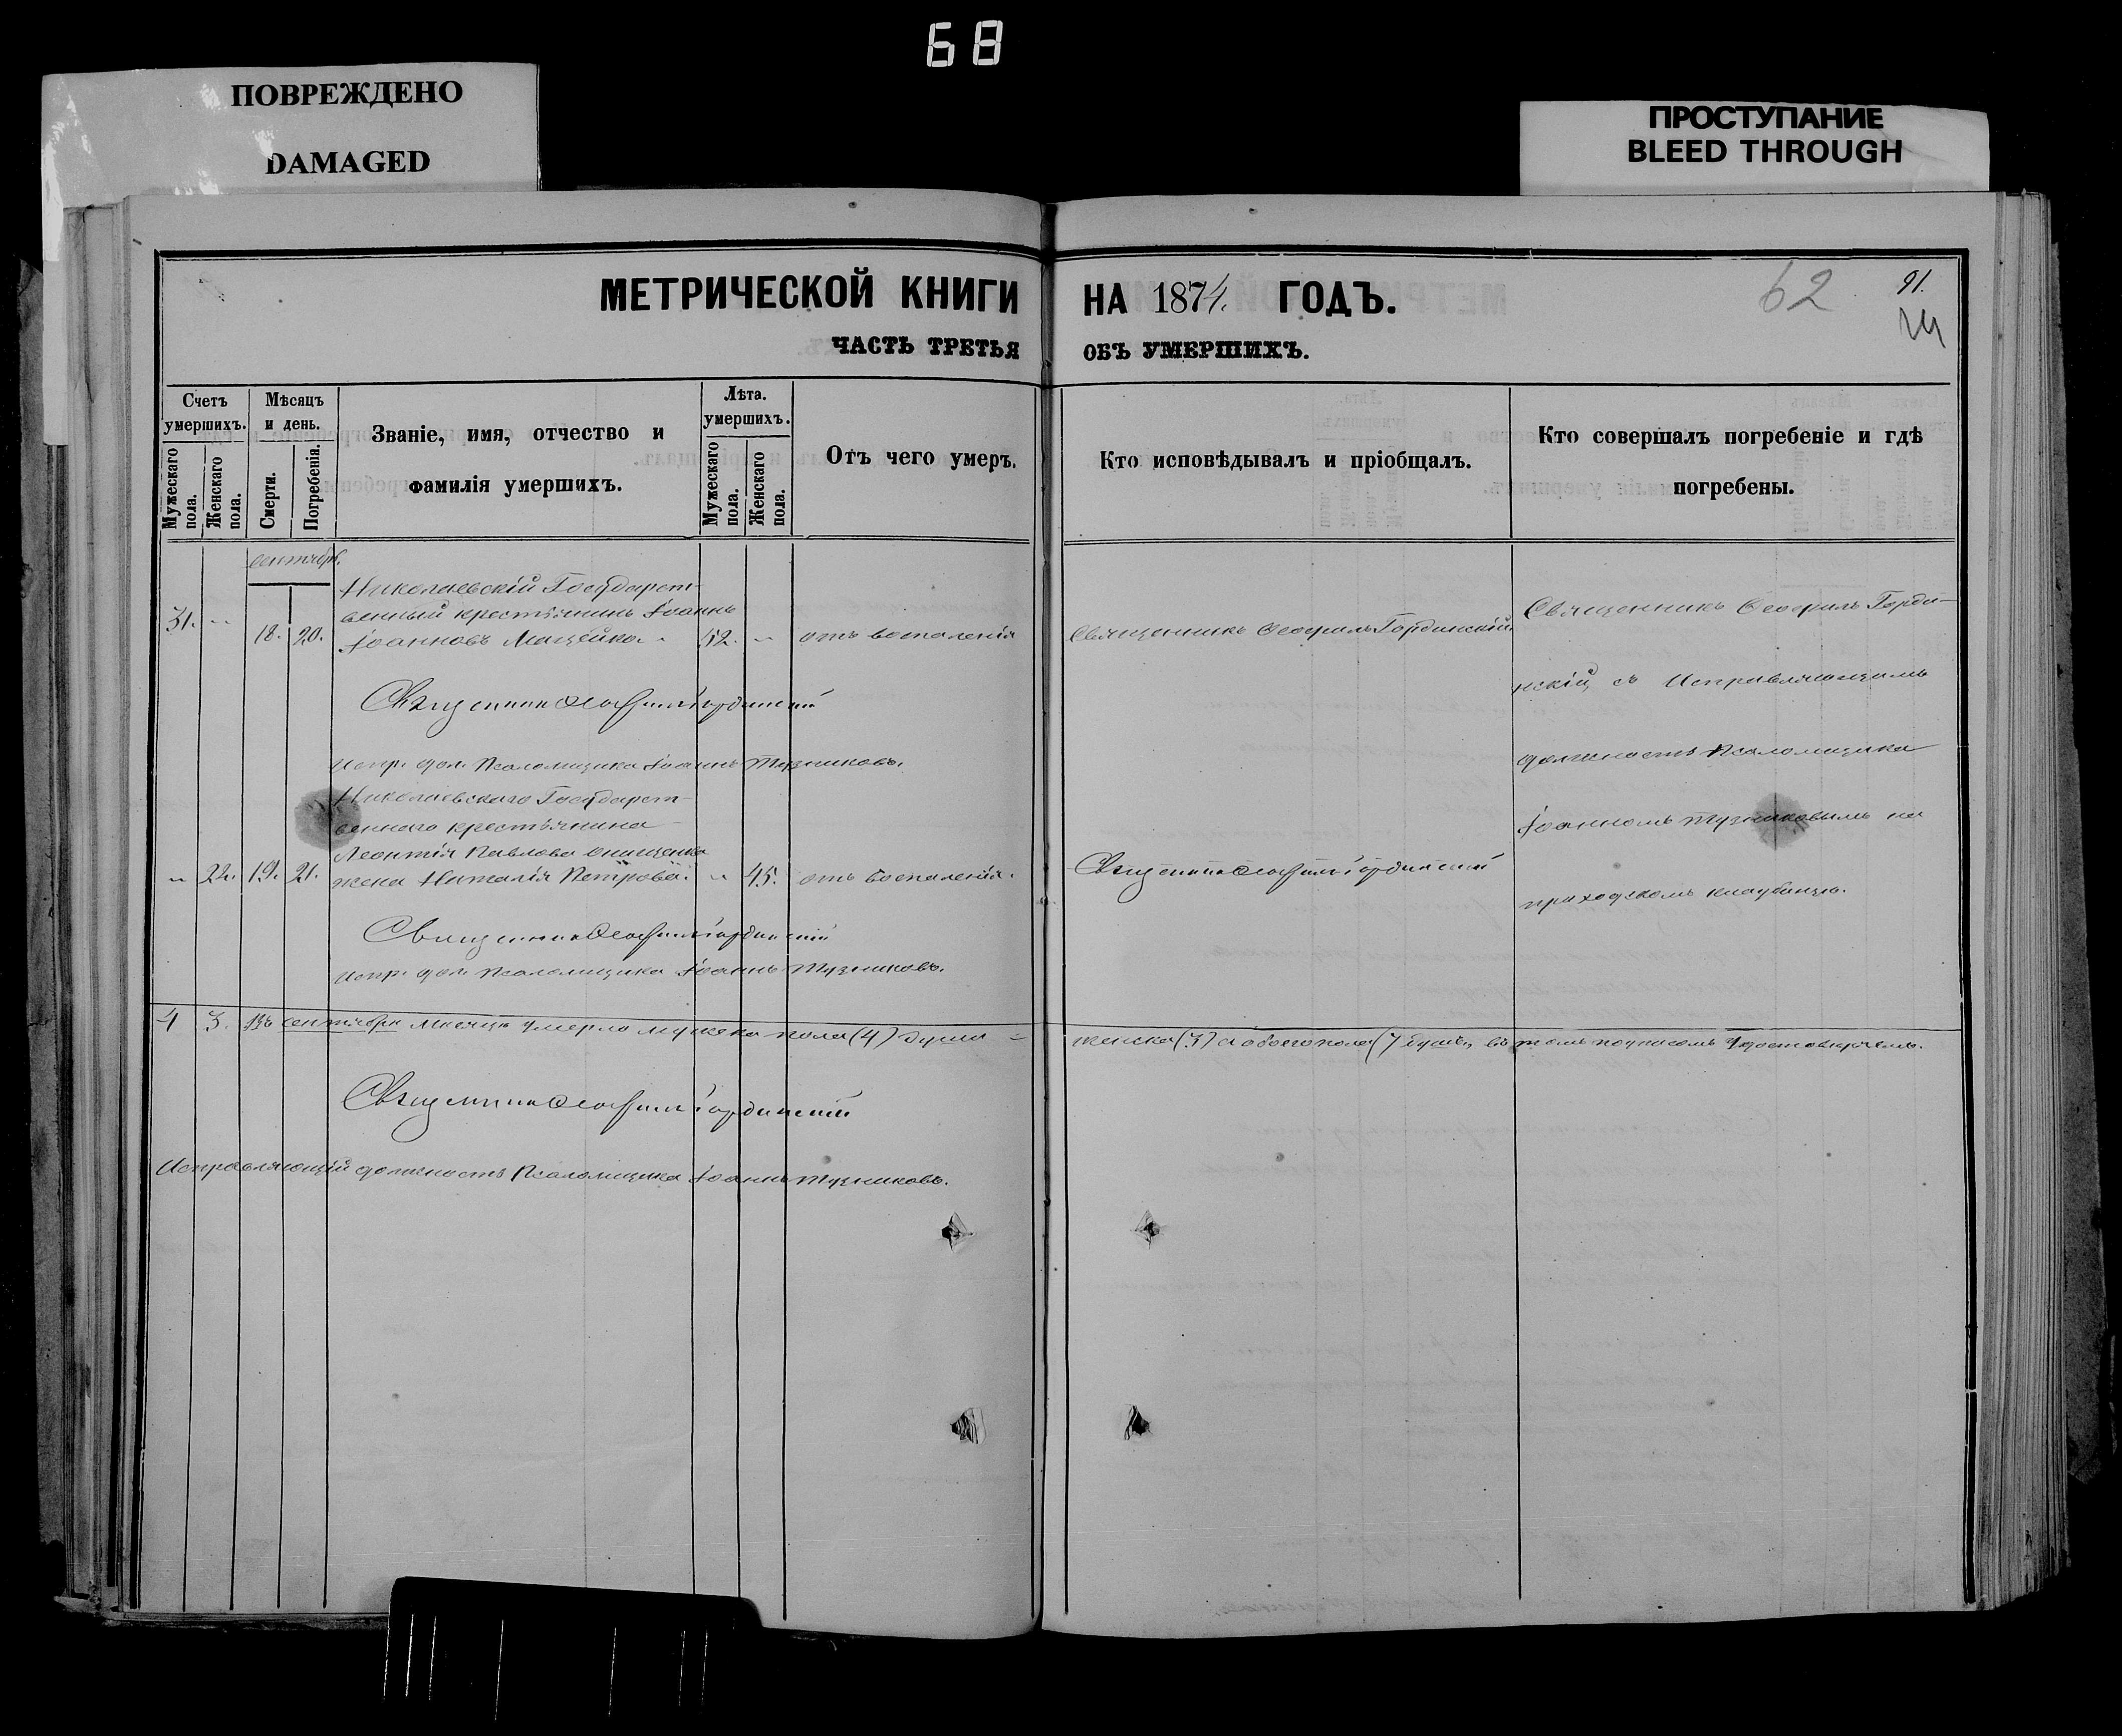 68
ПОВРЕЖДЕНО
DAMAGED
ПРОСТУПАНИЕ
BLEED THROUGH
МЕТРИЧЕСКОЙ КНИГИ НА 1874. ГОДЪ.
62
91.
ЧАСТЬ ТРЕТЬЯ ОБЪ УМЕРШИХЪ.
Счетъ умершихъ.
Мужескаго пола.
Женскаго пола.
Мѣсяцъ и день.
Смерти.
Погребенія.
Званіе, имя, отчество и
фамилія умершихъ.
Лѣта. умершихъ.
Мужескаго пола.
Женскаго пола.
Отъ чего умеръ.
Кто исповѣдывалъ и пріобщалъ.
Кто совершалъ погребеніе и гдѣ
погребены.
сентябрь.
Николаевскій Государст-
венный крестьянинъ Іоаннъ
31. 18. 20. Іоанновъ Мацейко 52. отъ воспаленія
Священникъ Ѳеофилъ Гординскій.
Священникъ Ѳеофилъ Горди-
нскій съ Исправляющимъ
должность Псаломщика
Іоанномъ Тузниковымъ на
приходскомъ кладбищѣ.
Священникъ Ѳеофилъ Гординскій
Испр. дол. Псаломщика Іоаннъ Тузниковъ.
Николаевскаго Государст-
веннаго крестьянина
Леонтія Павлова Онищенка
22. 19. 21. жена Наталія Петрова. 45. отъ воспаленія.
Священникъ Ѳеофилъ Гординскій
Священникъ Ѳеофилъ Гординскій
Испр. дол. Псаломщика Іоаннъ Тузниковъ.
4 3. Въ сентябрѣ мѣсяцѣ умерло мужска пола (4) душа женска (3) а обоего пола (7 душъ, въ томъ подписомъ удостовѣряемъ.
Священникъ Ѳеофилъ Гординскій
Исправляющій должность Псаломщика Іоаннъ Тузниковъ.